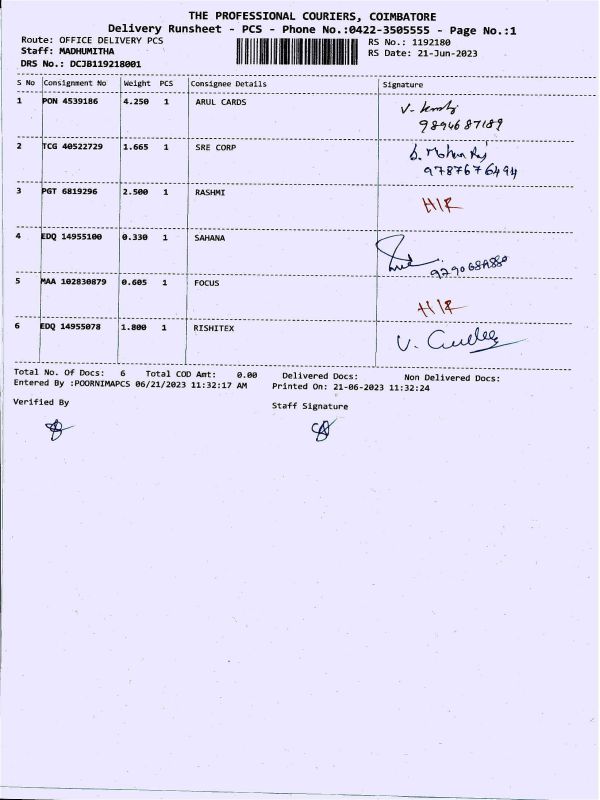 THE PROFESSIONAL COURIERS, COIMBATORE
Delivery Runsheet - PCS - Phone No.:0422-3505555 - Page No.:1
Route: OFFICE DELIVERY PCS
RS No.: 1192180
Staff: MADHUMITHA
RS Date: 21-Jun-2023
DRS No.: DCJB119218001
S No Consignment No Weight PCS Consignee Details Signature
1 PON 4539186 4.250 1 ARUL CARDS
V.
9894687189
2 TCG 40522729 1.665 1 SRE CORP
9787676494
3 PGT 6819296 2.500 1 RASHMI
H/R
4 EDQ 14955100 0.330 1 SAHANA
5 MAA 102830879 0.605 1 FOCUS
H/R
6 EDQ 14955078 1.800 1 RISHITEX
V.
Total No. Of Docs: 6 Total COD Amt: 0.00 Delivered Docs: Non Delivered Docs:
Entered By :POORNIMAPCS 06/21/2023 11:32:17 AM Printed On: 21-06-2023 11:32:24
Verified By
Staff Signature